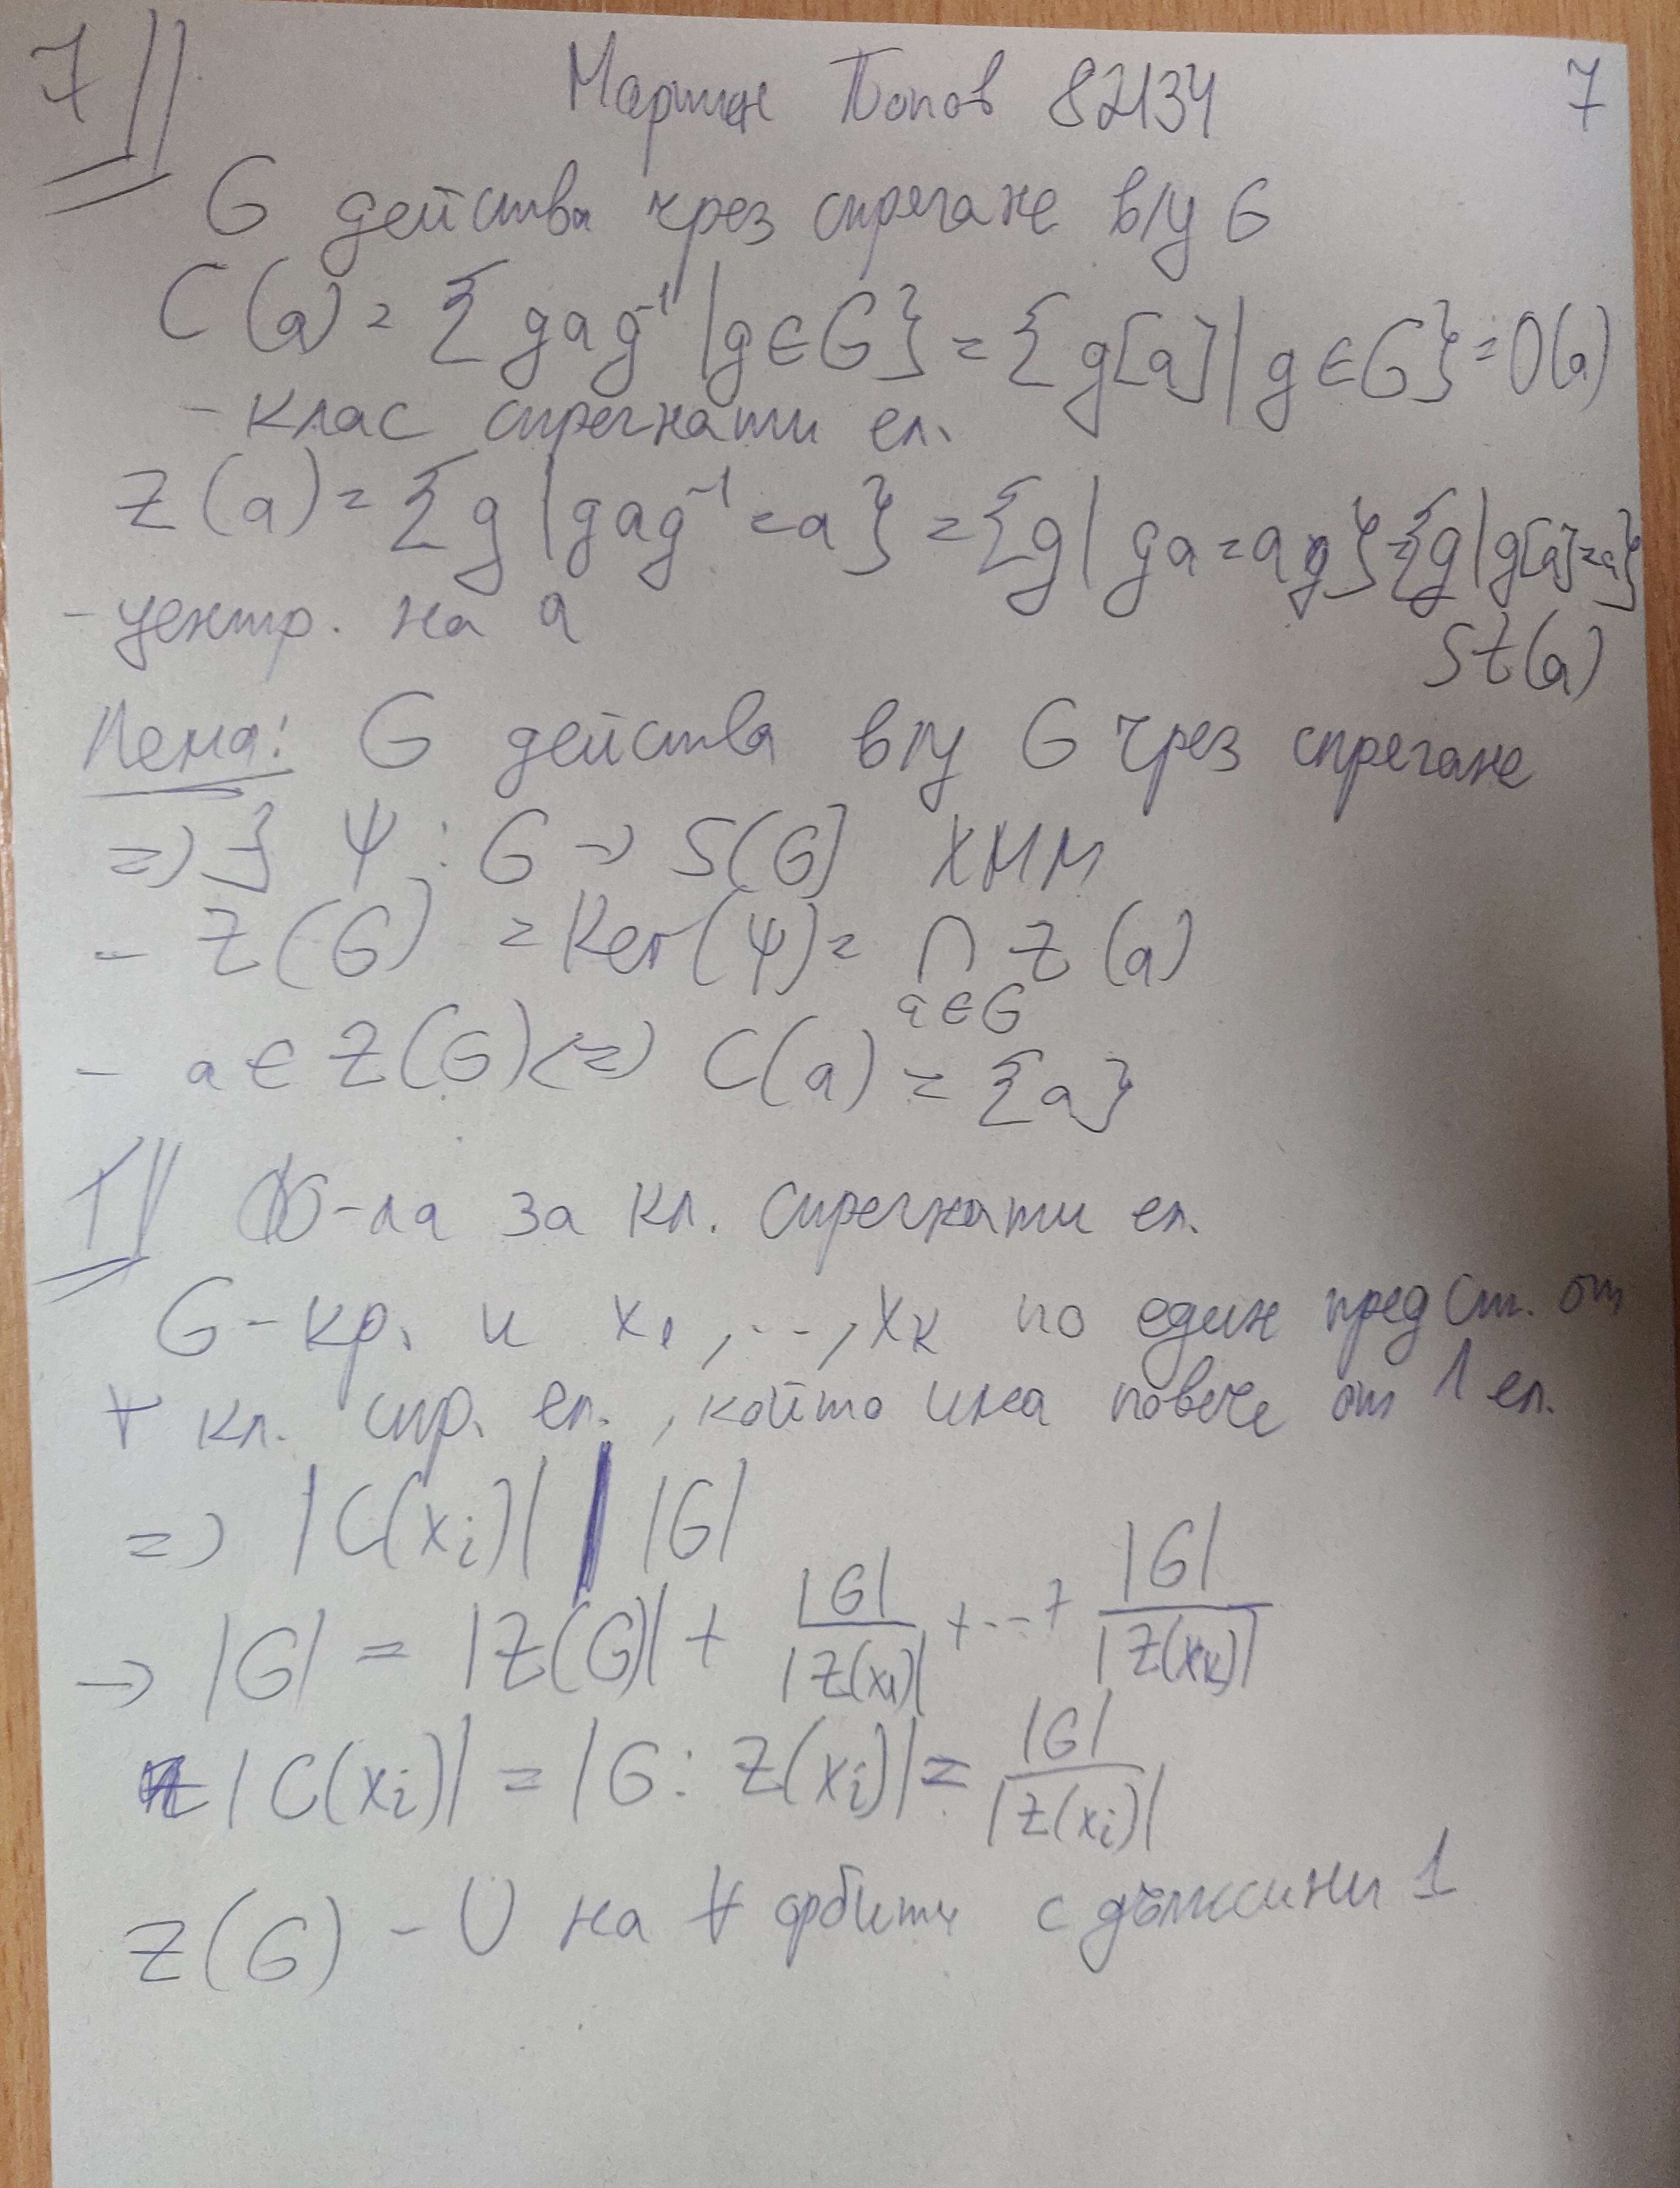 7 Мартин Попов 82134 7
G действа чрез спрягане в/у G
C(a) = {gag⁻¹ | g∈G} = {g[a] | g∈G} = O(a)
- клас спрегнати ел.
Z(a) = {g | gag⁻¹ = a} = {g | ga = ag} = {g | g[a] = a}
- центр. на a St(a)
Лема: G действа в/у G чрез спрягане
=> ∃ Ψ : G → S(G) ХММ
- Z(G) = Ker(Ψ) = ∩ Z(a)
a∈G
- a ∈ Z(G) <=> C(a) = {a}
T Ф-ла за кл. спрегнати ел.
G - кр. и x₁, ..., xₖ по един предст. от
∀ кл. спр. ел., който има повече от 1 ел.
=> |C(xᵢ)| | |G|
→ |G| = |Z(G)| + |G|/|Z(x₁)| + ... + |G|/|Z(xₖ)|
|C(xᵢ)| = |G : Z(xᵢ)| = |G|/|Z(xᵢ)|
Z(G) - U на ∀ орбити с дължини 1